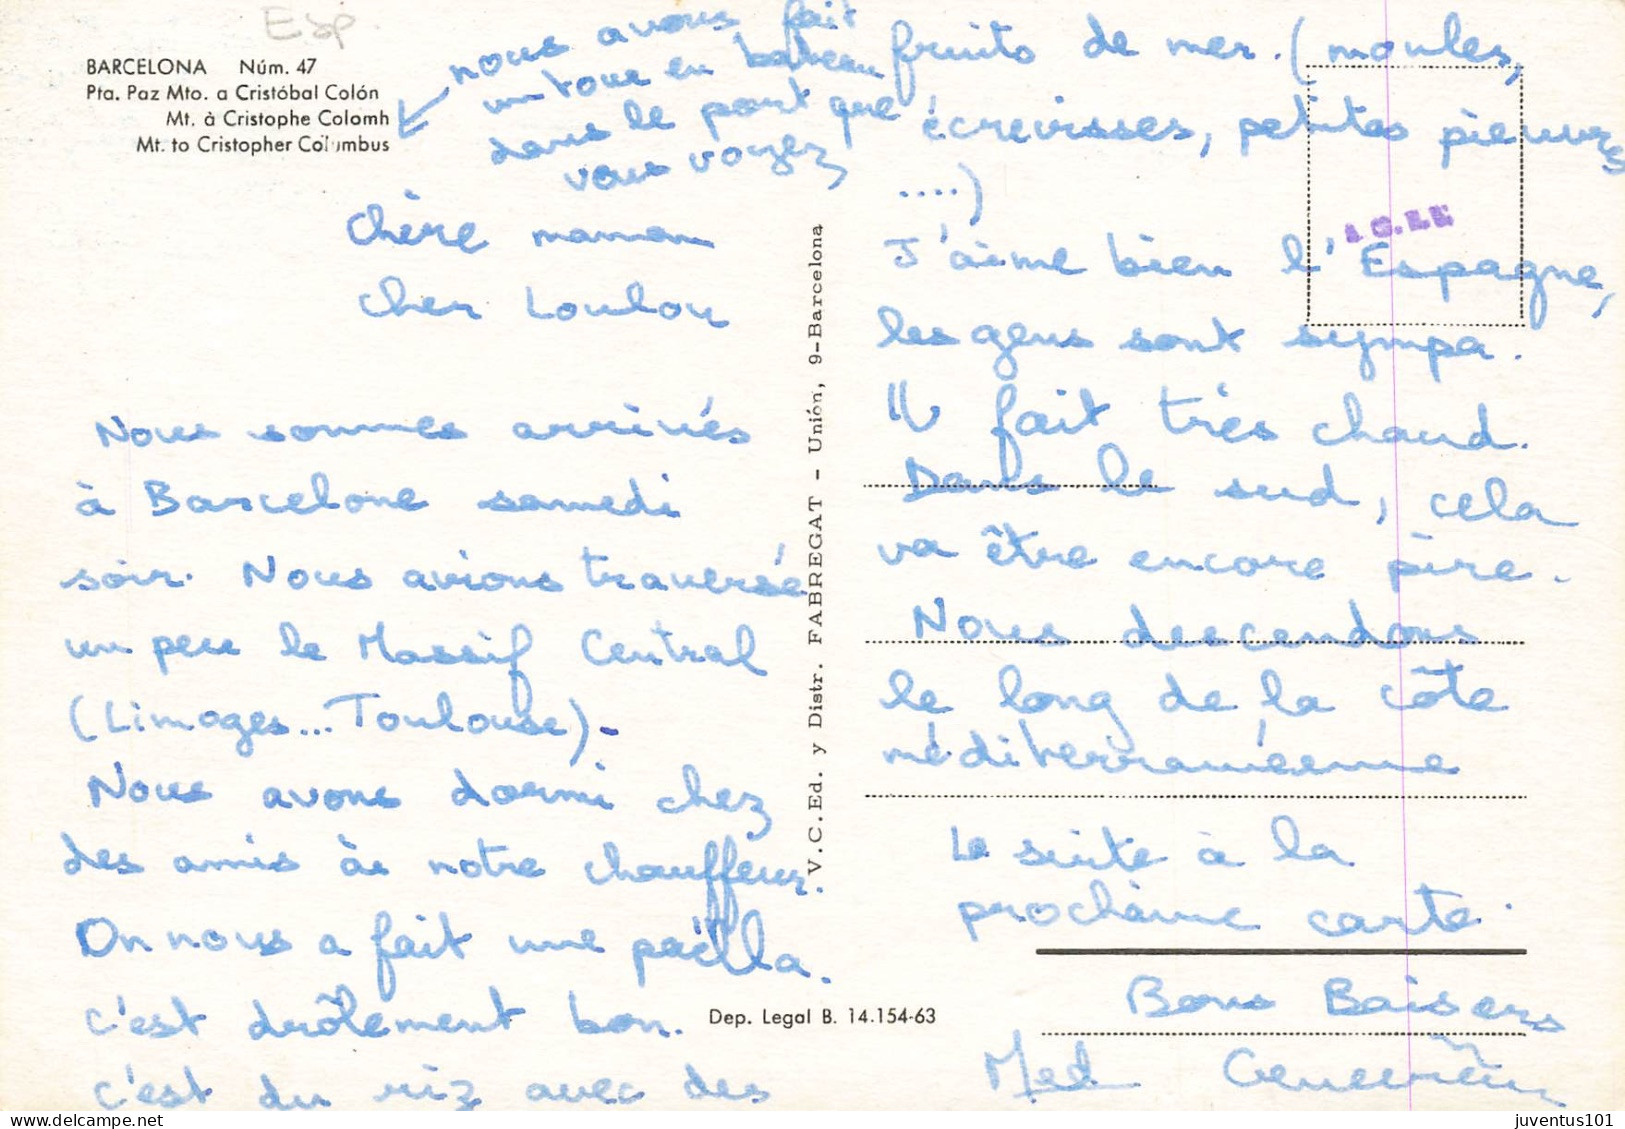 Esp
BARCELONA Núm. 47
Pta. Paz Mto. a Cristóbal Colón
Mt. à Cristophe Colomh
Mt. to Cristopher Columbus
nous avons fait
un tour en bateau
dans le port que
vous voyez
Chère maman
cher Loulou
Nous sommes arrivés
à Barcelone samedi
soir. Nous avions traversé
un peu le Massif Central
(Limoges... Toulouse).
Nous avons dormi chez
des amis à notre chauffeur.
On nous a fait une paëlla.
c'est drôlement bon.
c'est du riz avec des
fruits de mer. (moules,
écrevisses, petites pieuvres
....)
J'aime bien l'Espagne,
les gens sont sympa.
Il fait très chaud.
Dans le sud, cela
va être encore pire.
Nous descendons
le long de la côte
méditerranéenne
La suite à la
prochaine carte.
Bons Baisers
Med
V.C. Ed. y Distr. FABREGAT - Unión, 9-Barcelona
Dep. Legal B. 14.154-63
juventus101